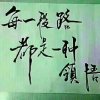 每一段路
都是一种
領悟